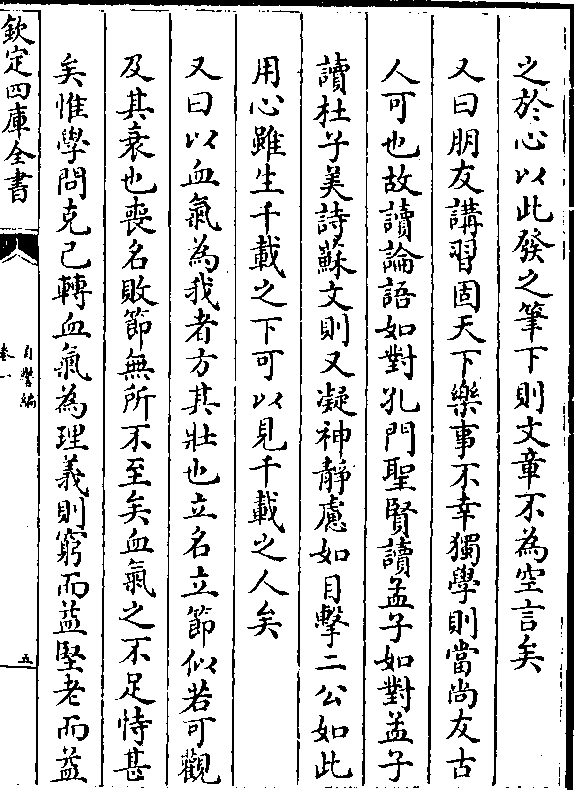 之於心以此發之筆下則文章不為空言矣
又曰朋友講習固天下樂事不幸獨學則當尚友古
人可也故讀論語如對孔門聖賢讀孟子如對孟子
讀杜子美詩蘇文則又凝神靜慮如目擊二公如此
用心雖生千載之下可以見千載之人矣
又曰以血氣為我者方其壯也立名立節似若可觀
及其衰也喪名敗節無所不至矣血氣之不足恃甚
矣惟學問克己轉血氣為理義則窮而益堅老而益
欽定四庫全書
自警編
卷一
五